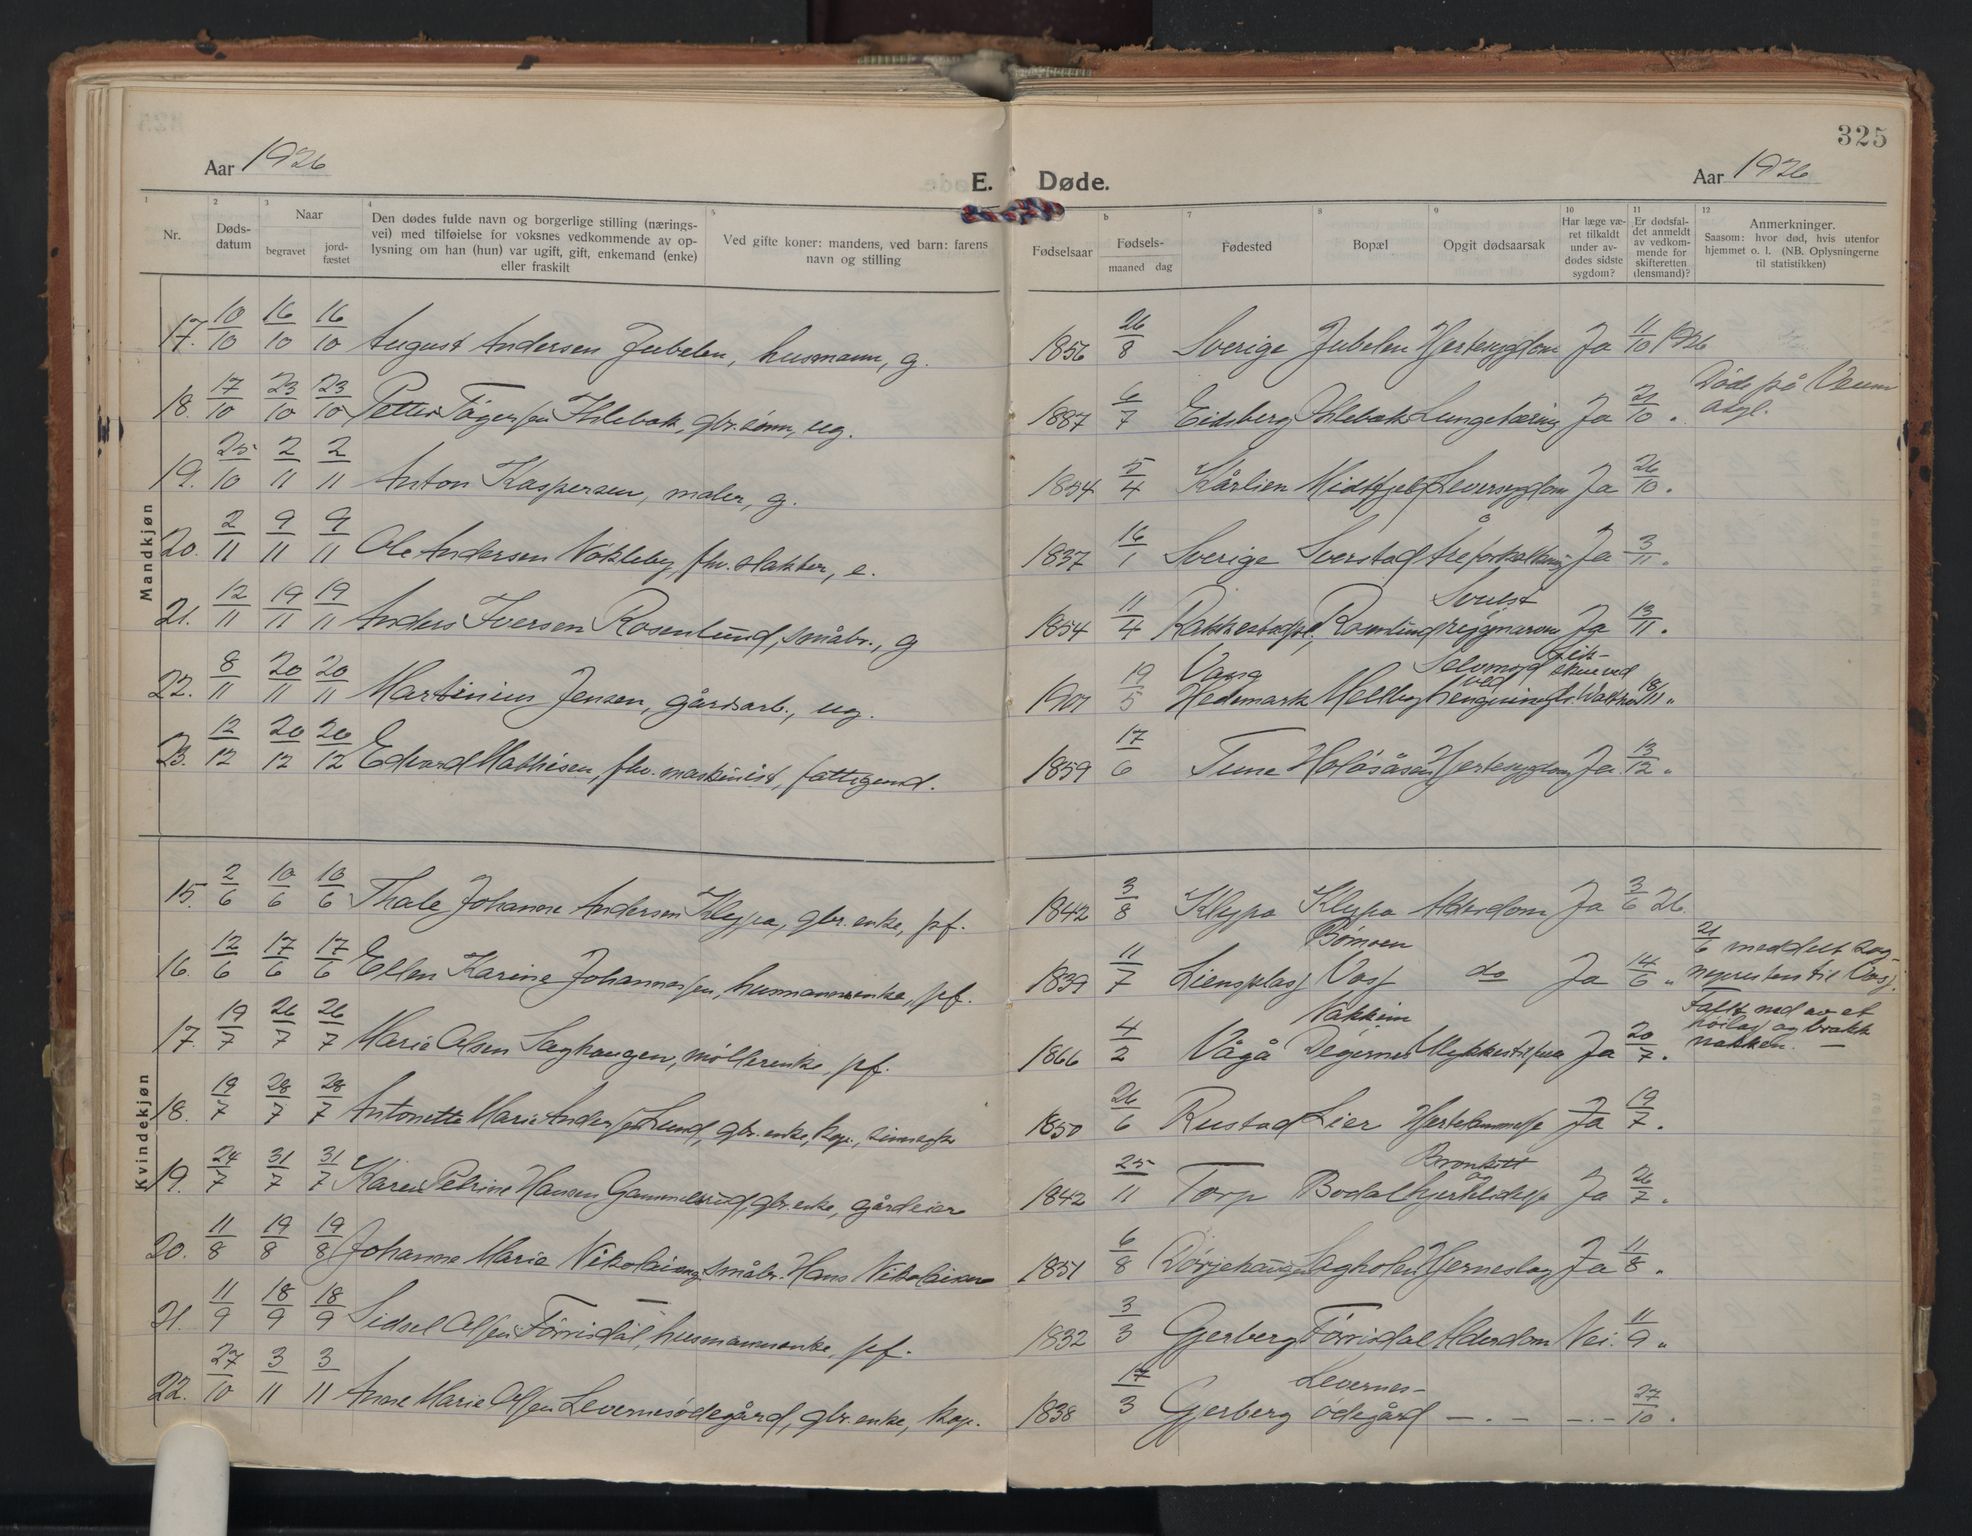 325
Aar 1926 E. Døde. Aar 1926
1 Nr.
2 Døds-datum
3 Naar begravet jord-fæstet
4 Den dødes fulde navn og borgerlige stilling (nærings-
vei) med tilføielse for voksnes vedkommende av op-
lysning om han (hun) var ugift, gift, enkemand (enke)
eller fraskilt
5 Ved gifte koner: mandens, ved barn: farens
navn og stilling
Fødselsaar
6 Fødsels- maaned dag
7 Fødested
8 Bopæl
9 Opgit dødsaarsak
10 Har læge væ-
ret tilkaldt
under av-
dødes sidste
sygdom?
11 Er dødsfal-
det anmeldt
av vedkom-
mende for
skifteretten
(lensmand)?
12 Anmerkninger.
Saasom: hvor død, hvis utenfor
hjemmet o. l. (NB. Oplysningerne
til statistikken)
Mandkjøn
17. 10/10 16/10 16/10 August Andersen Jubelen, husmann, g. 1856 26/8 Sverige Jubelen Hjertesygdom Ja 11/10 1926
18. 17/10 23/10 23/10 Petter Torgersen Ihlebæk, gbr. sønn, ug. 1887 6/7 Eidsberg Ihlebæk Lungetæring Ja 21/10 „ Døde på Veum asyl.
19. 25/10 2/11 2/11 Anton Kaspersen, maler, g. 1854 5/4 Kårlien Midtfjeld Leversygdom Ja 26/10 „
20. 2/11 9/11 9/11 Ole Andersen Nökleby, fhv. slakter, e. 1837 16/1 Sverige Sverstad Åreforkalkning Ja 3/11 „
21. 12/11 19/11 19/11 Anders Iversen Rosenlund, småbr., g 1854 11/4 Rakkestad Svulst Ja 13/11 „
22. 8/11 20/11 20/11 Martinius Jensen, gårdsarb., ug. 1907 19/5 Vang Hedemark Mellby Selvmord ved hengning Lik-skue ved 18/11 „
23. 12/12 20/12 20/12 Edvard Mathisen, fhv. maskinist, fattigund. 1859 17/6 Tune Holåsåsen Hjertesygdom Ja 13/12 „
Kvindekjøn
15. 2/6 10/6 10/6 Thale Johanne Andersen Klypa, gbr. enke, pf. 1842 3/8 Klypa Klypa Alderdom Ja 3/6 26.
16. 12/6 17/6 17/6 Ellen Karine Johannessen, husmannsenke, pf. 1839 11/7 Liensplass Bömoen Voss do Ja 14/6 „ 21/6 meddelt sog-nepresten til Voss.
17. 19/7 26/7 26/7 Marie Olsen Saghaugen, møllerenke, pf. 1866 4/2 Vågå Nakkim Degernes Ulykkestilfelle Ja 20/7 „ Falt ned av et höilass og brakk nakken.
18. 19/7 28/7 28/7 Antonette Marie Andersen Lund, gbr. enke, kap., sinnssyk 1850 26/6 Rustad Lier Hjertelammelse Ja 19/7 „
19. 24/7 31/7 31/7 Karen Petrine Hansen Gammelsrud, gbr. enke, gårdeier 1842 25/11 Torp Bodal Bronkitt og hjertelidelse Ja 26/7 „
20. 11/8 19/8 19/8 Johanne Marie Nikolaisen, g. småbr. Hans Nikolaisen 1851 6/8 Börjehaugen Sagholen Hjerneslag Ja 11/8 „
21. 11/9 18/9 18/9 Sidsel Olsen Törrisdal, husmannsenke, pf. 1832 3/3 Gjerberg Törrisdal Alderdom Nei. 11/9 „
22. 27/10 3/11 3/11 Anne Marie Olsen Levernesödegård, gbr. enke, kap. 1838 17/3 Gjerberg Levernes-ödegård —.— —.— 27/10 „